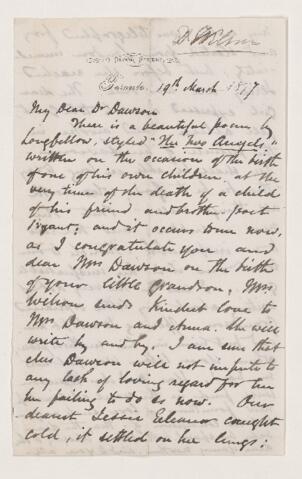 D. Wilson
Toronto 19th March 1877
My Dear Dr Dawson
There is a beautiful poem by
Longfellow, styled "The Two Angels,"
written on the occasion of the birth
of one of his own children, at the
very time of the death of a child
of his friend and brother-poet
Bryant; and it occurs to me now,
as I congratulate you and
dear Mrs Dawson on the birth
of your little grandson. Mrs
Wilson sends kindest love to
Mrs Dawson and Anna. She will
write by and by. I am sure that
Mrs Dawson will not impute to
any lack of loving regard for her
her failing to do so now. Our
dearest Jessie Eleanor caught
cold, it settled on her lungs;